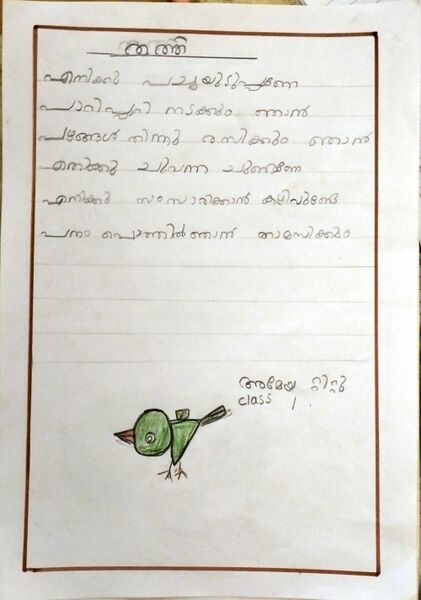 തത്ത
എനിക്കു പച്ചയുടുപ്പാണേ
പാറിപ്പാറി നടക്കും ഞാൻ
പഴങ്ങൾ തിന്നു രസിക്കും ഞാൻ
എനിക്കു ചുവന്ന ചുണ്ടാണേ
എനിക്കു സംസാരിക്കാൻ കഴിവുണ്ടേ
പനം പൊത്തിൽ ഞാൻ താമസിക്കും
അമേയ റ്റിറ്റു
class 1.